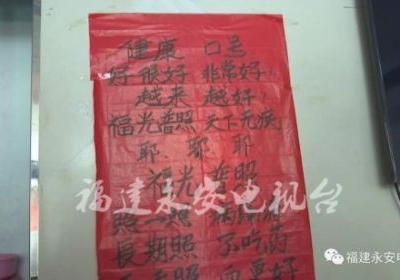 健康 口号
好很好 非常好!
越来 越好!
福光普照 天下无疾
耶 耶 耶
福光 普照
照一照
長期照 不吃药
更好
福建永安电视台
福建永安电